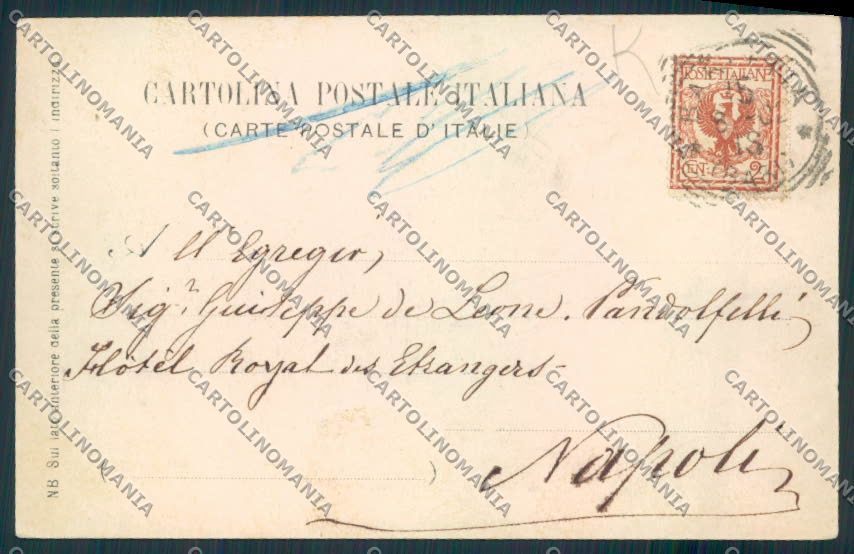 CARTOLINA POSTALE ITALIANA
(CARTE POSTALE D'ITALIE)
K
POSTE ITALIANE
CEN. 2
All' Egregio,
Sigr. Giuseppe de Leone. Pandolfelli
Hôtel Royal des Etrangers
Napoli
NB Sul lato anteriore della presente si scrive soltanto l'indirizzo
CARTOLINOMANIA